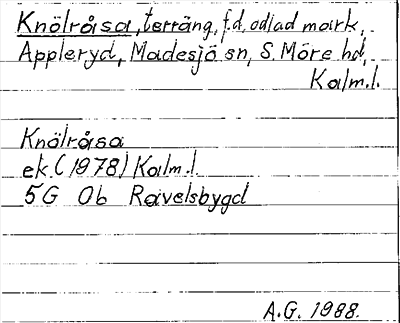 Knölråsa, terräng, f.d. odlad mark,
Appleryd, Madesjö sn, S. Möre hd,
Kalm.l.
Knölråsa
ek. (1978) Kalm.l.
5G 0b Ravelsbygd
A.G. 1988.